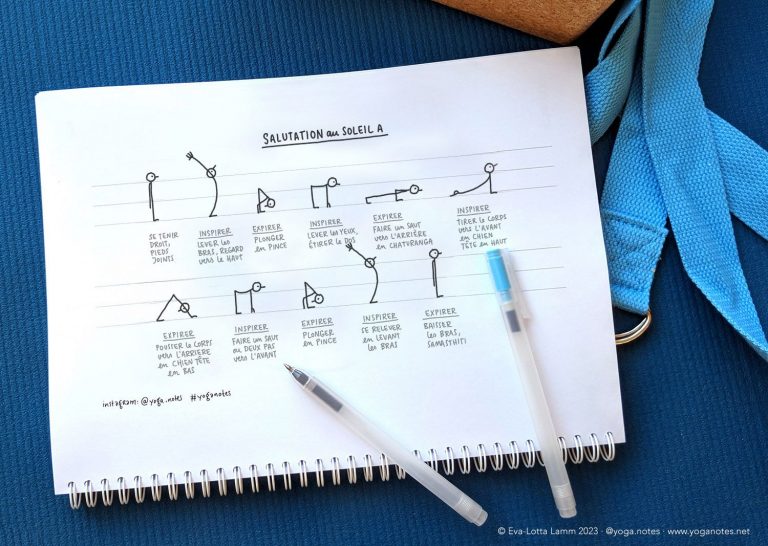 SALUTATION au SOLEIL A
SE TENIR
DROIT,
PIEDS
JOINTS
INSPIRER
LEVER les
BRAS, REGARD
vers le HAUT
EXPIRER
PLONGER
en PINCE
INSPIRER
LEVER les YEUX,
ÉTIRER le DOS
EXPIRER
FAIRE un SAUT
vers L'ARRIÈRE
en CHATURANGA
INSPIRER
TIRER le CORPS
vers L'AVANT
en CHIEN
TÊTE en HAUT
EXPIRER
POUSSER le CORPS
vers L'ARRIERE
en CHIEN TÊTE
en BAS
INSPIRER
FAIRE un SAUT
ou DEUX PAS
vers L'AVANT
EXPIRER
PLONGER
en PINCE
INSPIRER
SE RELEVER
en LEVANT
les BRAS
EXPIRER
BAISSER
les BRAS,
SAMASTHITI
instagram: @yoga.notes #yoganotes
© Eva-Lotta Lamm 2023 · @yoga.notes · www.yoganotes.net